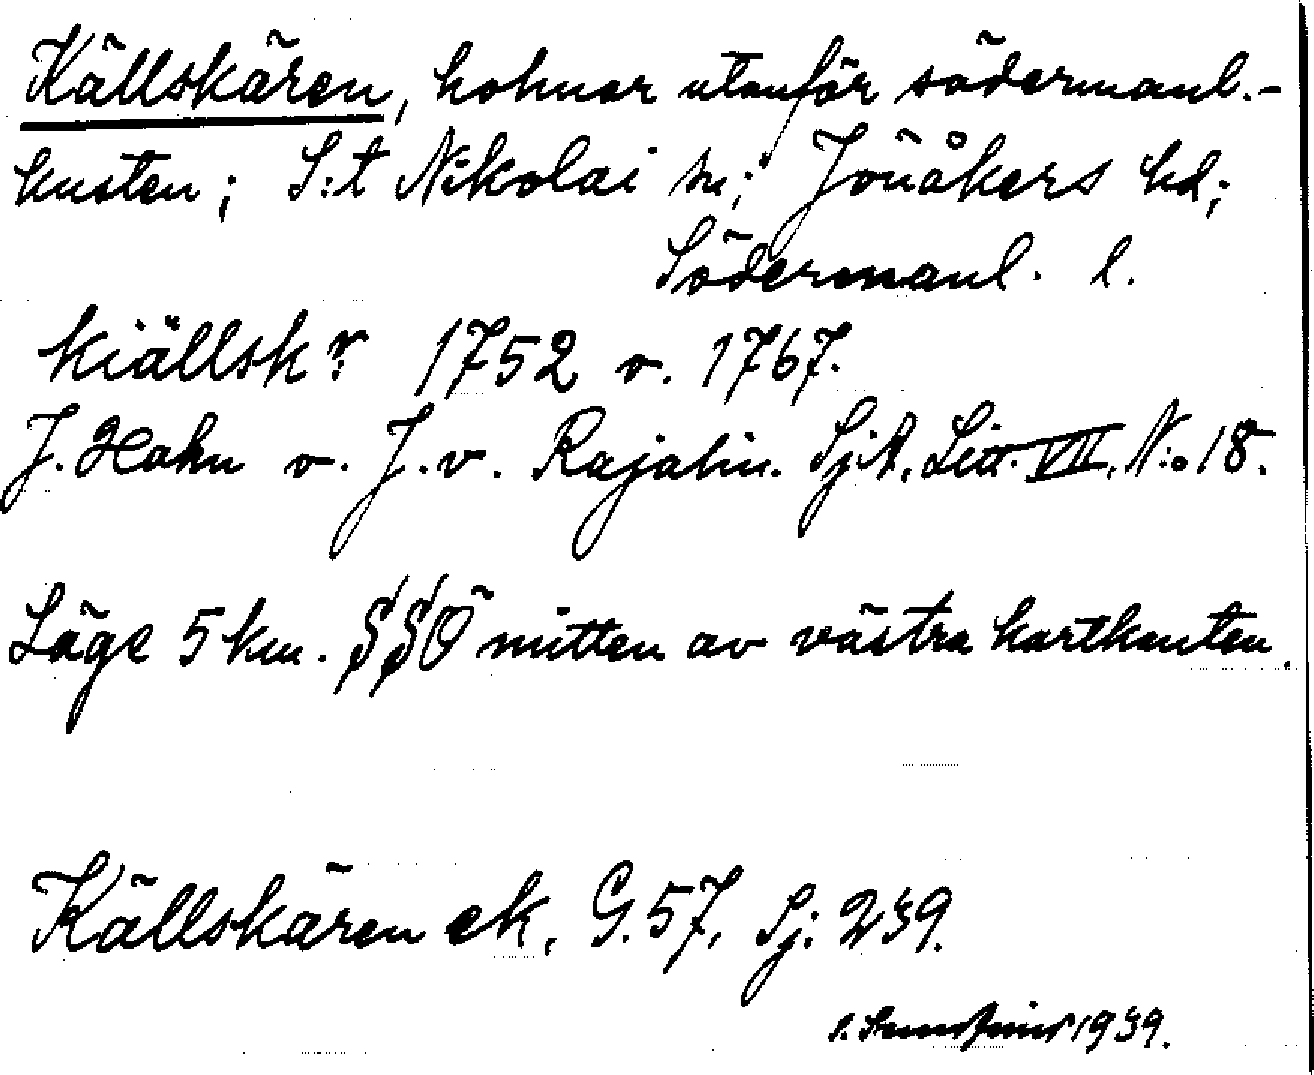 Källskären, holmar utanför södermanl.-
kusten; S:t Nikolai sn; Jönåkers hd;
Södermanl. l.
Kiällsk r 1752 o. 1767.
J. Hahn o. J. v. Rajalin. SjA. Litt. VII. N:o 18.
Läge 5 km. SSÖ mitten av västra kartkanten.
Källskären ek. G. 57, Sj: 239.
1939.